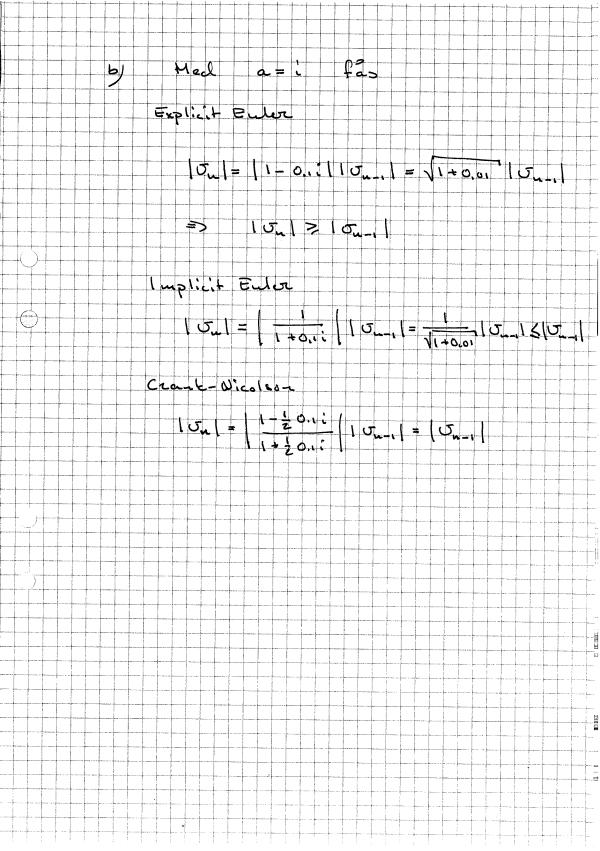 b) Med a = i fås
Explicit Euler
|U_n| = |1 - 0.1i| |U_{n-1}| = √(1+0.01) |U_{n-1}|
⇒ |U_n| ≥ |U_{n-1}|
Implicit Euler
|U_n| = |1/(1+0.1i)| |U_{n-1}| = 1/√(1+0.01) |U_{n-1}| ≤ |U_{n-1}|
Crank-Nicolson
|U_n| = |(1 - ½ 0.1i)/(1 + ½ 0.1i)| |U_{n-1}| = |U_{n-1}|